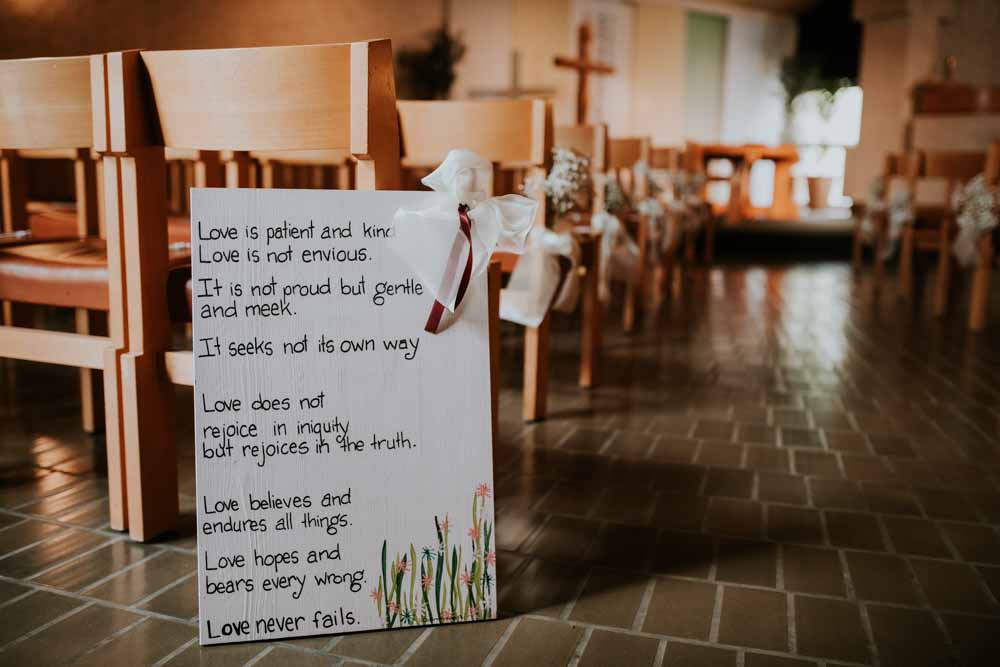 Love is patient and kind
Love is not envious.
It is not proud but gentle
and meek.
It seeks not its own way
Love does not
rejoice in iniquity
but rejoices in the truth.
Love believes and
endures all things.
Love hopes and
bears every wrong.
Love never fails.